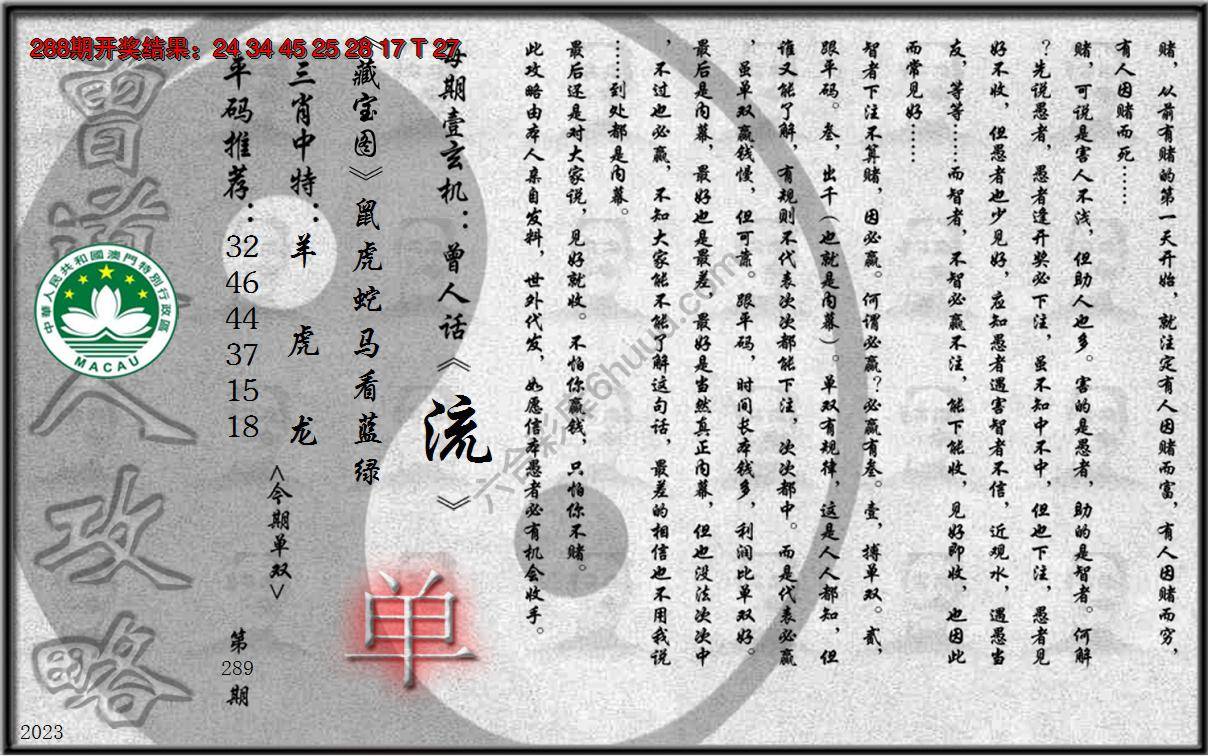 288期开奖结果：24 34 45 25 28 17 T 27
赌，从前有赌的第一天开始，就注定有人因赌而富，有人因赌而穷，
有人因赌而死……
赌，可说是害人不浅，但助人也多。害的是愚者，助的是智者。何解
？先说愚者，愚者逢开奖必下注，虽不知中不中，但也下注，愚者见
好不收，但愚者也少见好，应知愚者遇害智者不信，近观水，遇愚当
友，等等……而智者，不智必赢不注，能下能收，见好即收，也因此
而常见好……
智者下注不算赌，因必赢。何谓必赢？必赢有叁。壹，搏单双。贰，
跟平码。叁，出千（也就是内幕）。单双有规律，这是人人都知，但
谁又能了解，有规则不代表次次都能下注，次次都中。而是代表必赢
，虽单双赢钱慢，但可靠。跟平码，时间长本钱多，利润比单双好。
最后是内幕，最好也是最差，最好是当然真正内幕，但也没法次次中
，不过也必赢，不知大家能不能了解这句话，最差的相信也不用我说
……到处都是内幕。
最后还是对大家说，见好就收。不怕你赢钱，只怕你不赌。
此攻略由本人亲自发料，世外代发，如愿信本愚者必有机会收手。
每期壹玄机：曾人话《流》
《藏宝图》鼠虎蛇马看蓝绿
单
三肖中特：羊 虎 龙
<今期单双>
平码推荐：32 46 44 37 15 18
第289期
曾道人攻略
中華人民共和國澳門特別行政區
MACAU
2023
六合彩库6huuu.com